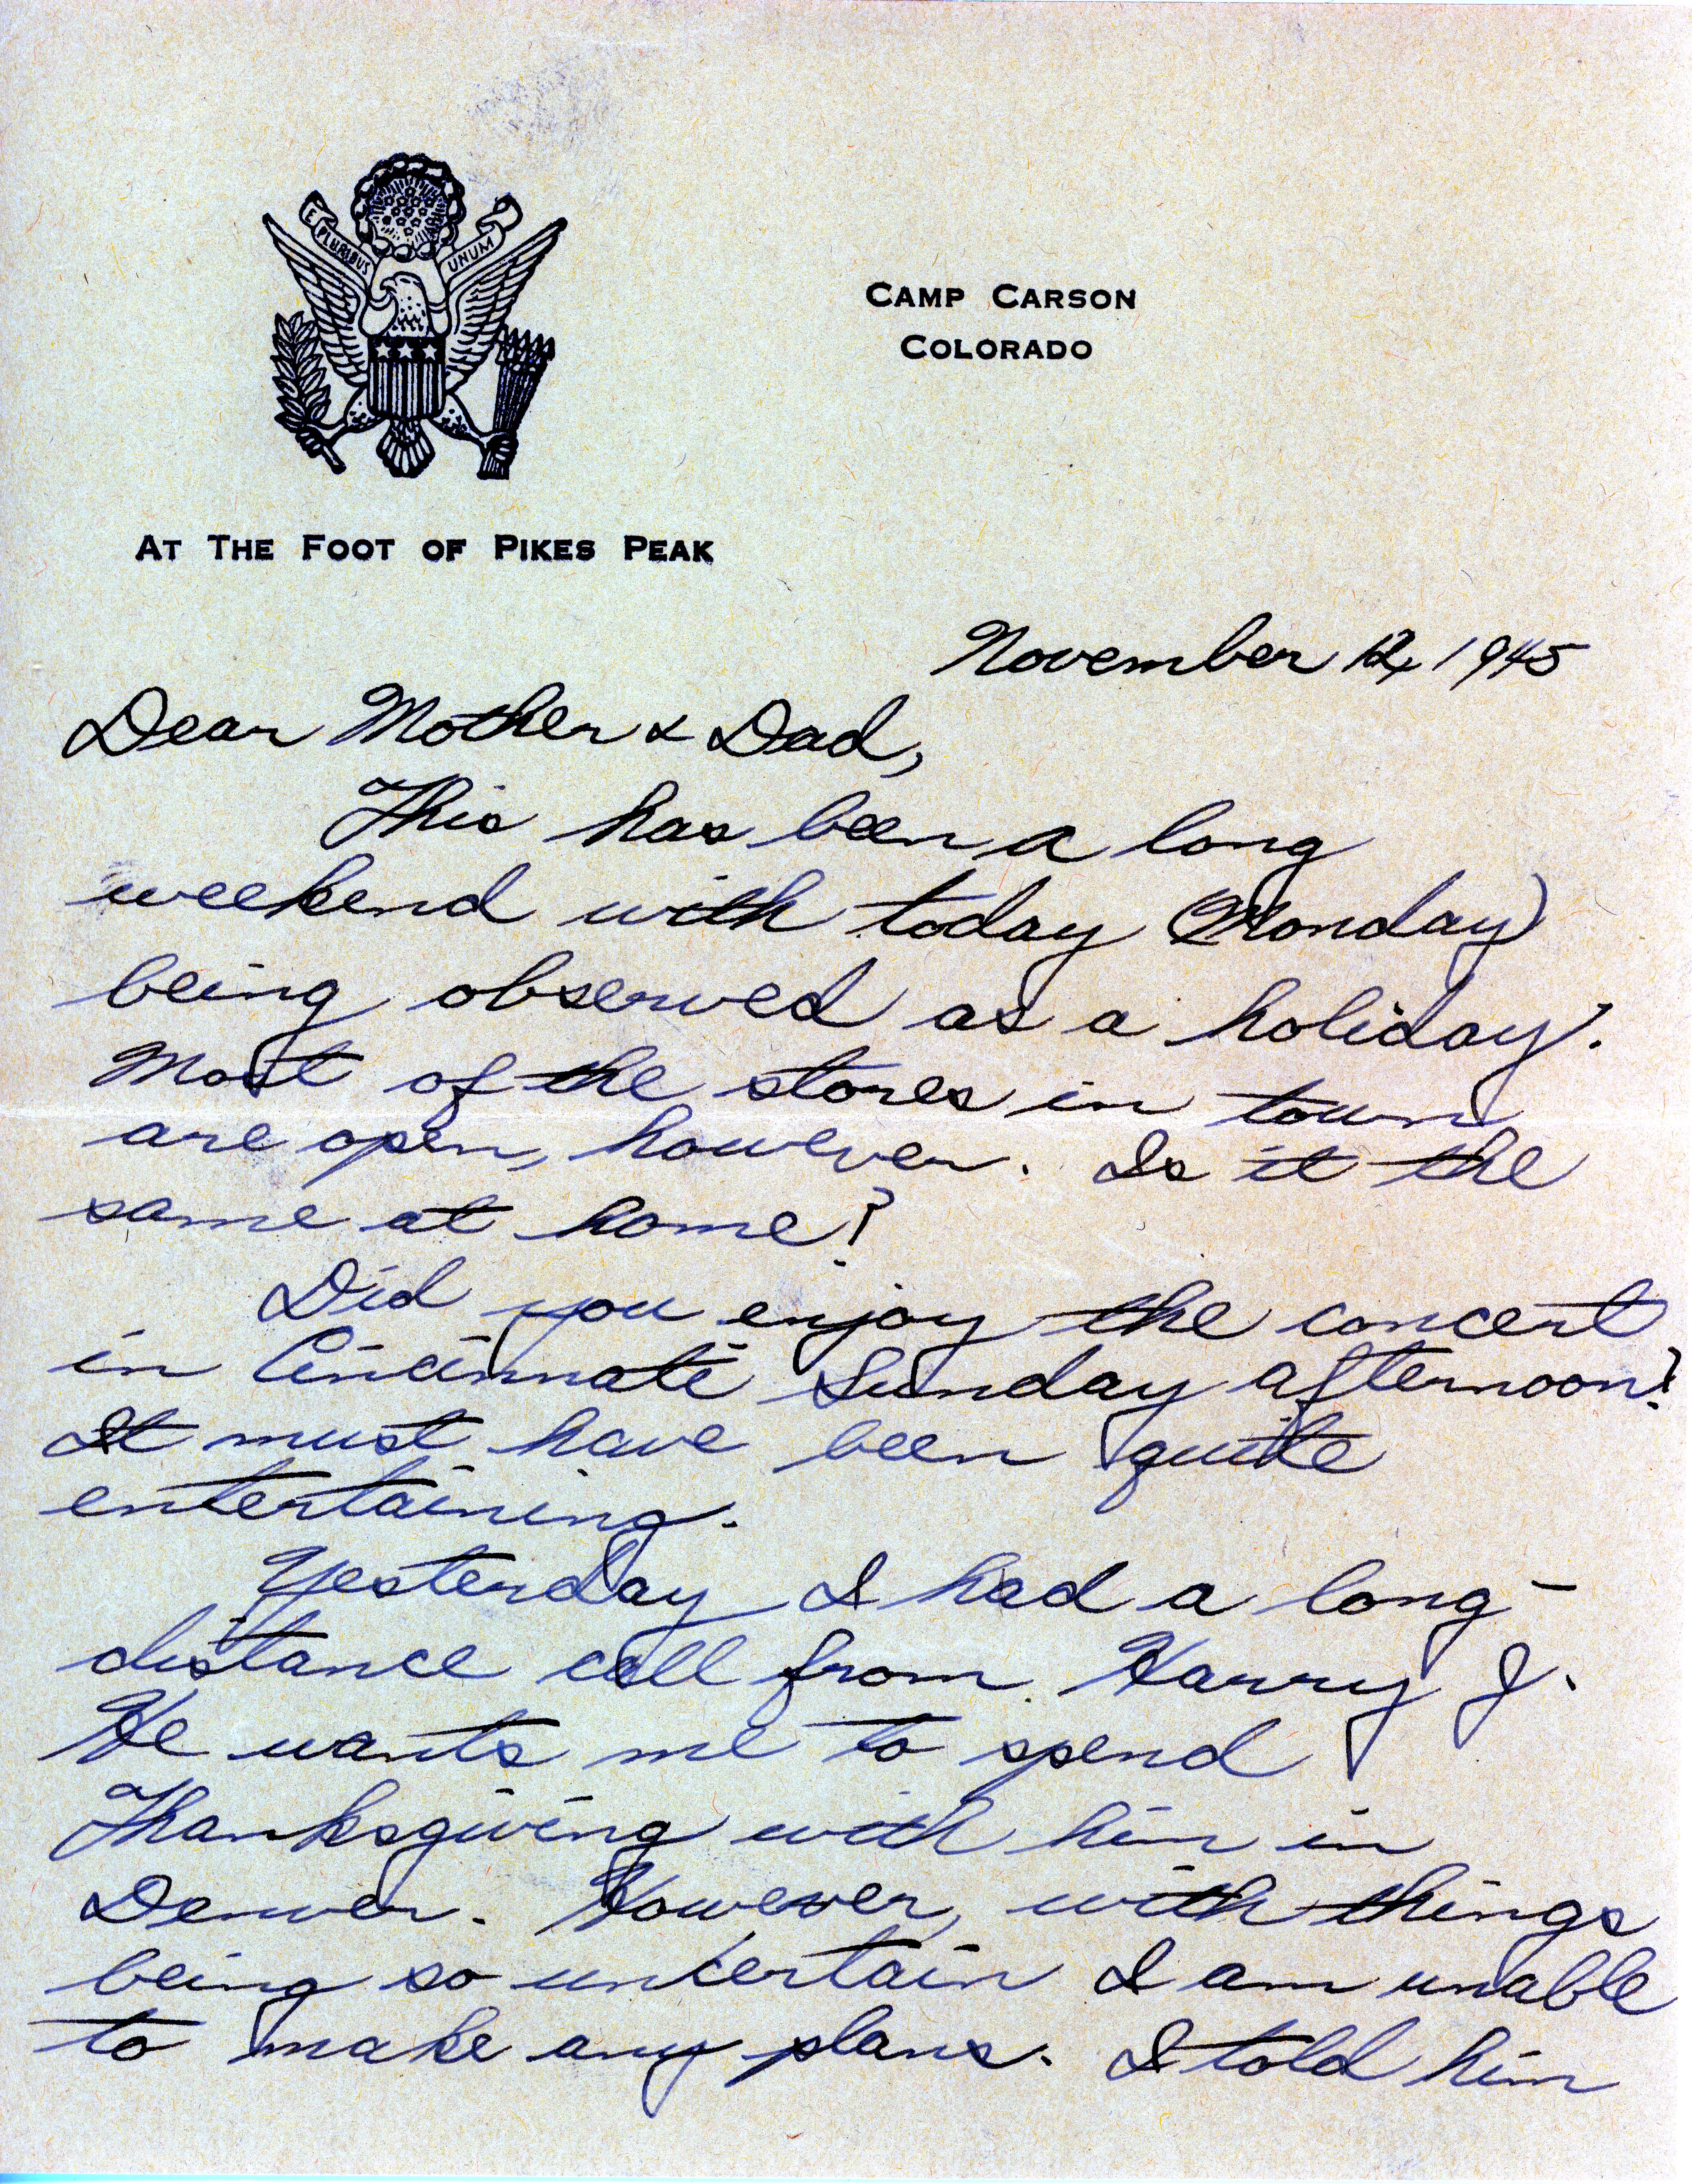 E PLURIBUS UNUM
CAMP CARSON
COLORADO
AT THE FOOT OF PIKES PEAK
November 12, 1945
Dear Mother & Dad,
This has been a long
weekend with today (Monday)
being observed as a holiday.
Most of the stores in town
are open, however. Is it the
same at home?
Did you enjoy the concert
in Cincinnati Sunday afternoon?
It must have been quite
entertaining.
Yesterday I had a long-
distance call from Harry J.
He wants me to spend
Thanksgiving with him in
Denver. However, with things
being so uncertain I am unable
to make any plans. I told him